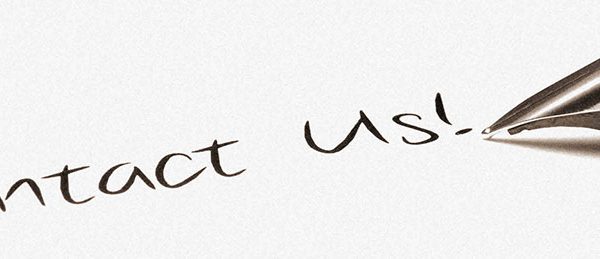 ntact us!